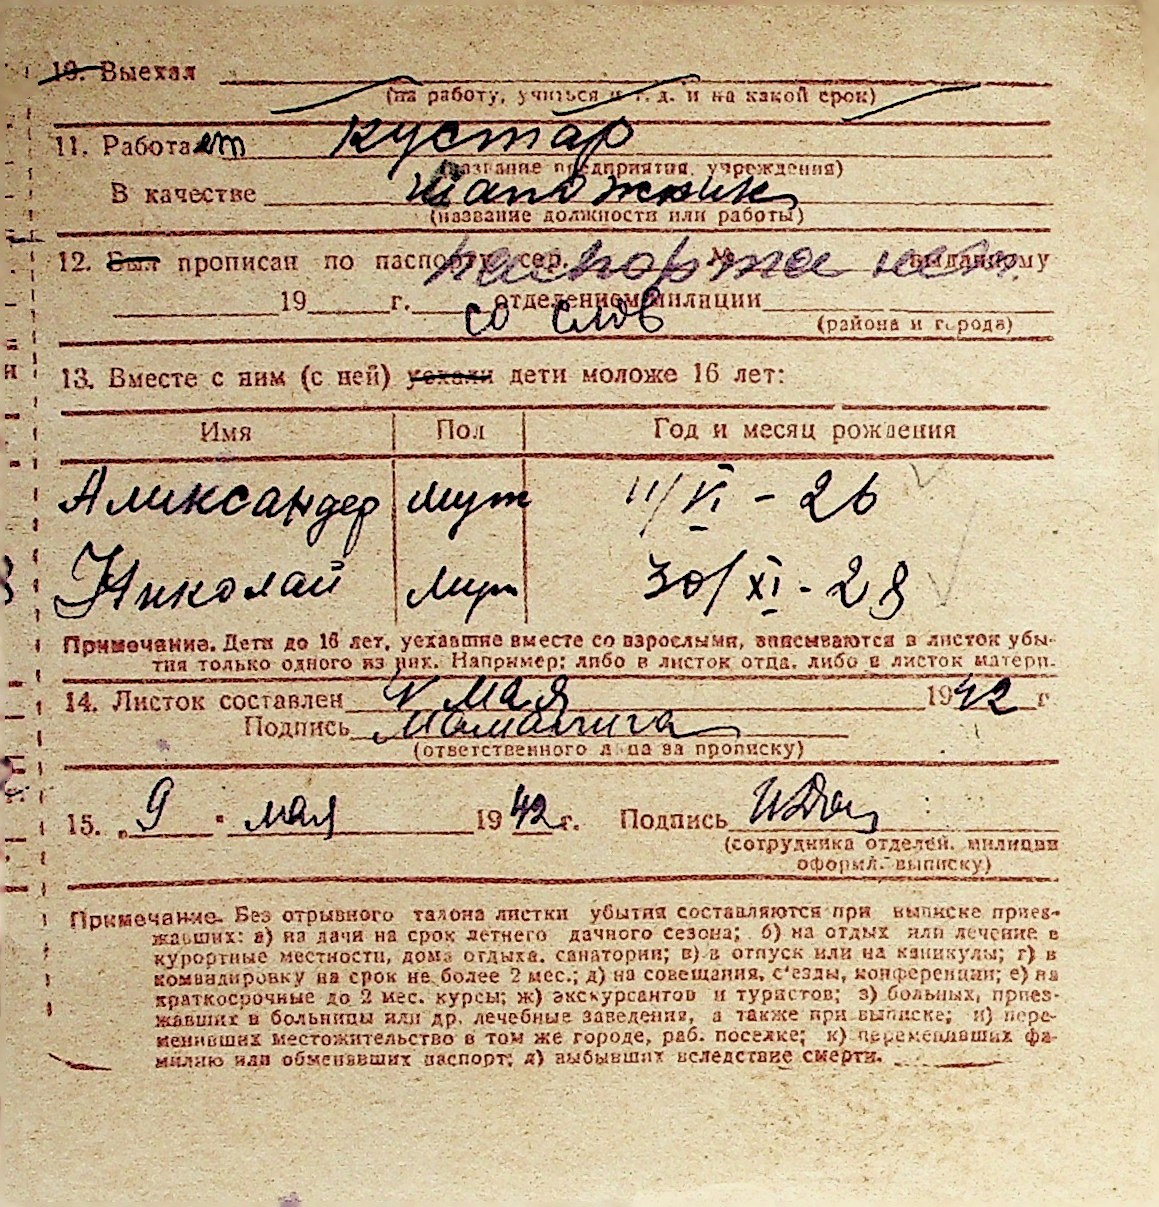 10. Выехал
(на работу, учиться и т. д. и на какой срок)
11. Работает кустар
(название предприятия, учреждения)
В качестве сапожник
(название должности или работы)
12. Был прописан по паспорту сер. № выданному
паспорта нет
19 г. отделением милиции
со слов
(района и города)
13. Вместе с ним (с ней) уехали дети моложе 16 лет:
Имя Пол Год и месяц рождения
Александер муж 11/VI - 26
Николай муж 30/XI - 28
Примечание. Дети до 16 лет, уехавшие вместе со взрослыми, вписываются в листок убы-
тия только одного из них. Например: либо в листок отца, либо в листок матери.
14. Листок составлен V мая 1942 г
Подпись
(ответственного лица за прописку)
15. „9" мая 1942 г. Подпись
(сотрудника отделен. милиции
оформл. выписку)
Примечание. Без отрывного талона листки убытия составляются при выписке приез-
жавших: а) на дачи на срок летнего дачного сезона; б) на отдых или лечение в
курортные местности, дома отдыха, санатории; в) в отпуск или на каникулы; г) в
командировку на срок не более 2 мес.; д) на совещания, с'езды, конференции; е) на
краткосрочные до 2 мес. курсы; ж) экскурсантов и туристов; з) больных, приез-
жавших в больницы или др. лечебные заведения, а также при выписке; и) пере-
менивших местожительство в том же городе, раб. поселке; к) переменивших фа-
милию или обменявших паспорт; л) выбывших вследствие смерти.